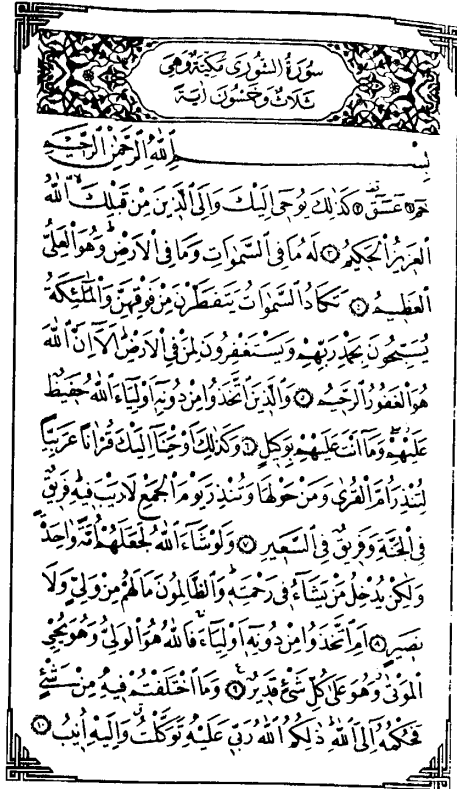 سُورَةُ الشُّورَى مَكِّيَّةٌ وَهِيَ
ثَلَاثٌ وَخَمْسُونَ اٰيَةً
بِسْمِ اللّٰهِ الرَّحْمٰنِ الرَّحِيمِ
حٰمٓ ۝١ عٓسٓقٓ ۝٢ كَذٰلِكَ يُوحِٓى اِلَيْكَ وَاِلَى الَّذِينَ مِنْ قَبْلِكَ اللّٰهُ
الْعَزِيزُ الْحَكِيمُ ۝٣ لَهُ مَا فِى السَّمٰوَاتِ وَمَا فِى الْاَرْضِ وَهُوَ الْعَلِىُّ
الْعَظِيمُ ۝٤ تَكَادُ السَّمٰوَاتُ يَتَفَطَّرْنَ مِنْ فَوْقِهِنَّ وَالْمَلٰٓئِكَةُ
يُسَبِّحُونَ بِحَمْدِ رَبِّهِمْ وَيَسْتَغْفِرُونَ لِمَنْ فِى الْاَرْضِ اَلَٓا اِنَّ اللّٰهَ
هُوَ الْغَفُورُ الرَّحِيمُ ۝٥ وَالَّذِينَ اتَّخَذُوا مِنْ دُونِهِٓ اَوْلِيَٓاءَ اللّٰهُ حَفِيظٌ
عَلَيْهِمْ وَمَٓا اَنْتَ عَلَيْهِمْ بِوَكِيلٍ ۝٦ وَكَذٰلِكَ اَوْحَيْنَٓا اِلَيْكَ قُرْاٰنًا عَرَبِيًّا
لِتُنْذِرَ اُمَّ الْقُرٰى وَمَنْ حَوْلَهَا وَتُنْذِرَ يَوْمَ الْجَمْعِ لَا رَيْبَ فِيهِ فَرِيقٌ
فِى الْجَنَّةِ وَفَرِيقٌ فِى السَّعِيرِ ۝٧ وَلَوْ شَٓاءَ اللّٰهُ لَجَعَلَهُمْ اُمَّةً وَاحِدَةً
وَلٰكِنْ يُدْخِلُ مَنْ يَشَٓاءُ فِى رَحْمَتِهِ وَالظَّالِمُونَ مَا لَهُمْ مِنْ وَلِىٍّ وَلَا
نَصِيرٍ ۝٨ اَمِ اتَّخَذُوا مِنْ دُونِهِٓ اَوْلِيَٓاءَ فَاللّٰهُ هُوَ الْوَلِىُّ وَهُوَ يُحْيِى
الْمَوْتٰى وَهُوَ عَلٰى كُلِّ شَىْءٍ قَدِيرٌ ۝٩ وَمَا اخْتَلَفْتُمْ فِيهِ مِنْ شَىْءٍ
فَحُكْمُهُٓ اِلَى اللّٰهِ ذٰلِكُمُ اللّٰهُ رَبِّى عَلَيْهِ تَوَكَّلْتُ وَاِلَيْهِ اُنِيبُ ۝١٠